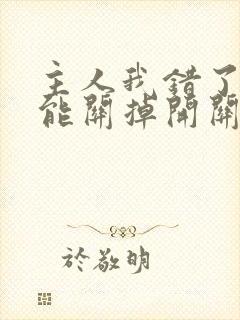 主人我錯了
能關掉開關
於敬明